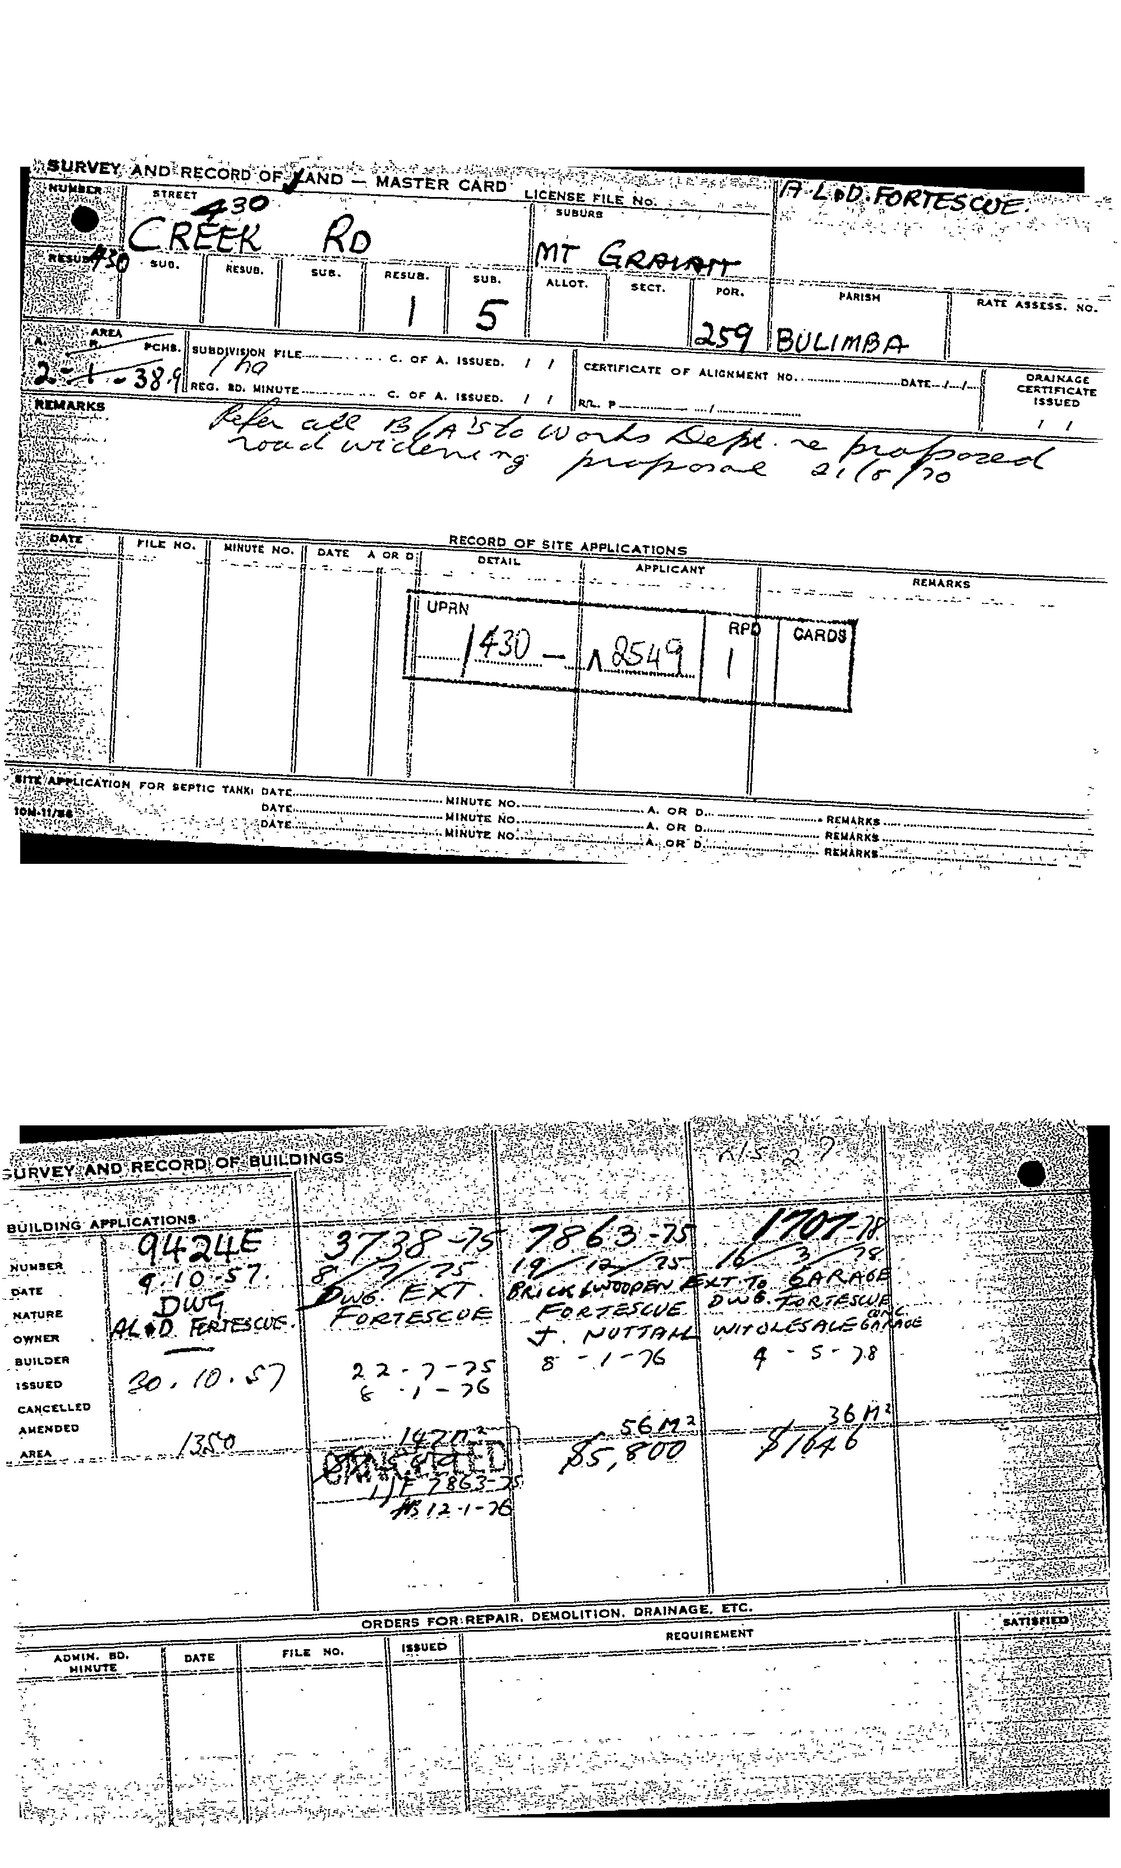 SURVEY AND RECORD OF LAND — MASTER CARD
LICENSE FILE No.
A.L. & D. FORTESCUE.
NUMBER STREET SUBURB
430
CREEK RD MT GRAVATT
430
RESUB. SUB. RESUB. SUB. RESUB. SUB. ALLOT. SECT. POR. PARISH RATE ASSESS. NO.
1 5 259 BULIMBA
A. AREA R. PCHS.
2 - 1 - 38.9
1 ha
SUBDIVISION FILE C. OF A. ISSUED. / /
REG. BD. MINUTE C. OF A. ISSUED. / /
CERTIFICATE OF ALIGNMENT NO. DATE / /
R/L. P /
DRAINAGE CERTIFICATE ISSUED
/ /
REMARKS
Refer all B/A's to Works Dept. re proposed
road widening proposal 21/5/70
RECORD OF SITE APPLICATIONS
DATE FILE NO. MINUTE NO. DATE A OR D. DETAIL APPLICANT REMARKS
UPRN RPD CARDS
1430 — 2549 1
SITE APPLICATION FOR SEPTIC TANK: DATE MINUTE NO. A. OR D. REMARKS
DATE MINUTE NO. A. OR D. REMARKS
DATE MINUTE NO. A. OR D. REMARKS
10M-11/56
SURVEY AND RECORD OF BUILDINGS
BUILDING APPLICATIONS
NUMBER 9424E 3738-75 7863-75 1707-78
DATE 9.10.57. 8/7/75 19/12/75 16/3/78
NATURE DWG DWG. EXT. BRICK & WOODEN EXT TO DWG. GARAGE
OWNER AL & D FORTESCUE. FORTESCUE FORTESCUE FORTESCUE
BUILDER — J. NUTTALL WHOLESALE CONC. GARAGE
ISSUED 30.10.57 22-7-75 8-1-76 4-5-78
CANCELLED 8-1-76
AMENDED
AREA 1350 147M² 56M² 36M²
$5,800 $1646
CANCELLED
I/F 7863-75
12-1-76
ORDERS FOR REPAIR, DEMOLITION, DRAINAGE, ETC.
ADMIN. BD. MINUTE DATE FILE NO. ISSUED REQUIREMENT SATISFIED